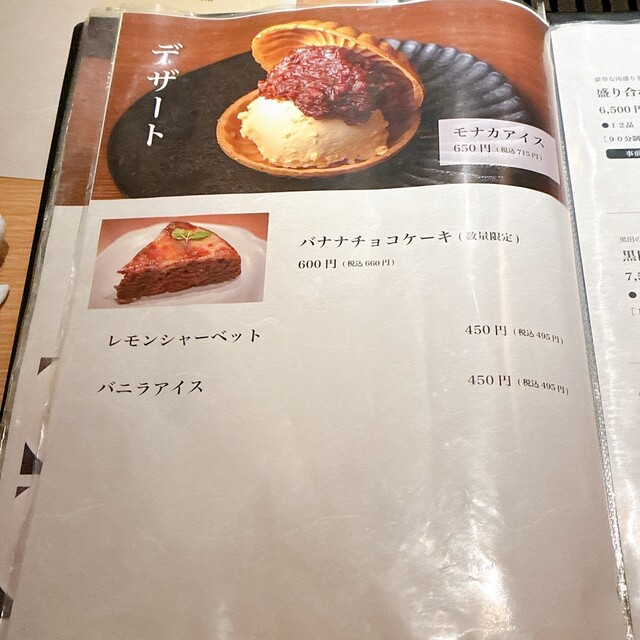 デザート
モナカアイス
650円(税込715円)
バナナチョコケーキ(数量限定)
600円(税込660円)
レモンシャーベット 450円(税込495円)
バニラアイス 450円(税込495円)
盛り合わ
6,500円
●12品
[90分制
事前